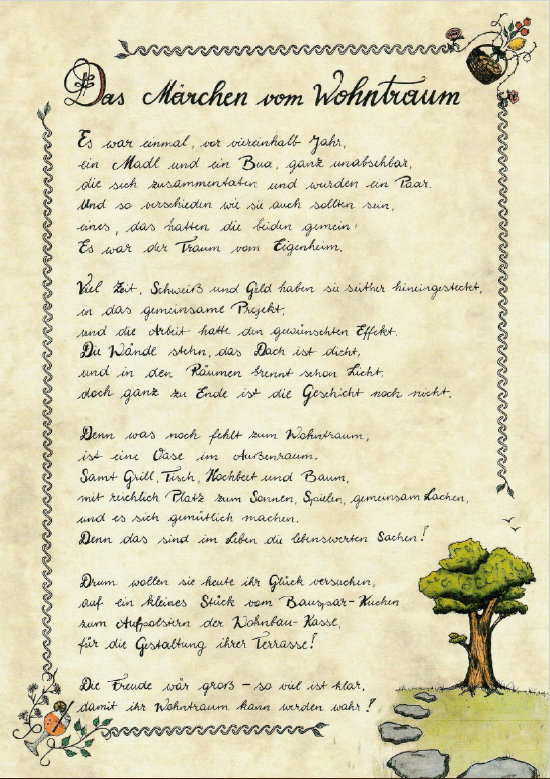 Das Märchen vom Wohntraum
Es war einmal, vor viereinhalb Jahr,
ein Madl und ein Bua, ganz unabsehbar,
die sich zusammentaten und wurden ein Paar.
Und so verschieden wie sie auch sollten sein,
eines, das hatten die beiden gemein:
Es war der Traum vom Eigenheim.
Viel Zeit, Schweiß und Geld haben sie seither hineingesteckt,
in das gemeinsame Projekt,
und die Arbeit hatte den gewünschten Effekt.
Die Wändl stehn, das Dach ist dicht,
und in den Räumen brennt schon Licht,
doch ganz zu Ende ist die Geschicht noch nicht.
Denn was noch fehlt zum Wohntraum,
ist eine Oase im Außenraum.
Samt Grill, Tisch, Hochbeet und Baum,
mit reichlich Platz zum Sonnen, Spielen, gemeinsam Lachen,
und es sich gemütlich machen.
Denn das sind im Leben die lebenswerten Sachen!
Drum wollen sie heute ihr Glück versuchen,
auf ein kleines Stück vom Bauspar-Kuchen
zum Aufpolstern der Wohnbau-Kasse,
für die Gestaltung ihrer Terrasse!
Die Freude wär groß – so viel ist klar,
damit ihr Wohntraum kann werden wahr!